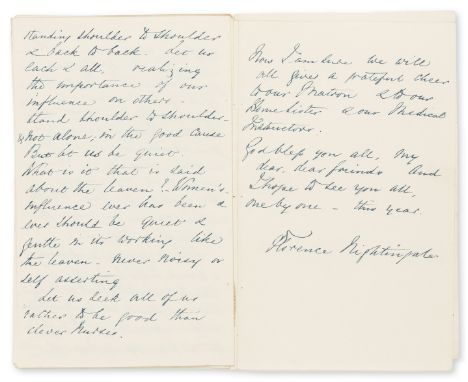 standing shoulder to shoulder
& back to back. Let us
each & all, realizing
the importance of our
influence on others -
stand shoulder to shoulder -
& not alone, in the good cause
But let us be quiet.
What is it that is said
about the leaven? Women's
influence ever has been &
ever should be quiet &
gentle in its working like
the leaven - never noisy or
self asserting
Let us seek all of us
rather to be good than
clever Nurses.
Now I am sure we will
all give a grateful cheer
to our Matron & to our
Home Sister & our Medical
Instructors.
God bless you all, my
dear, dear friends And
I hope to see you all,
one by one - this year.
Florence Nightingale